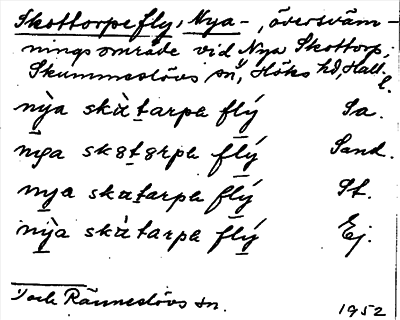 Skottorpefly, Nya -, översväm-
ningsområde vid Nya Skottorp,
Skummeslövs sn, Höks hd, Hall.
l.
nỳa skàtarpa flý Sa.
nya skatarpa flý Sand.
nya skatarpa flý St.
nỳa skàtarpa flý Ej.
Ränneslövs sn.
1952